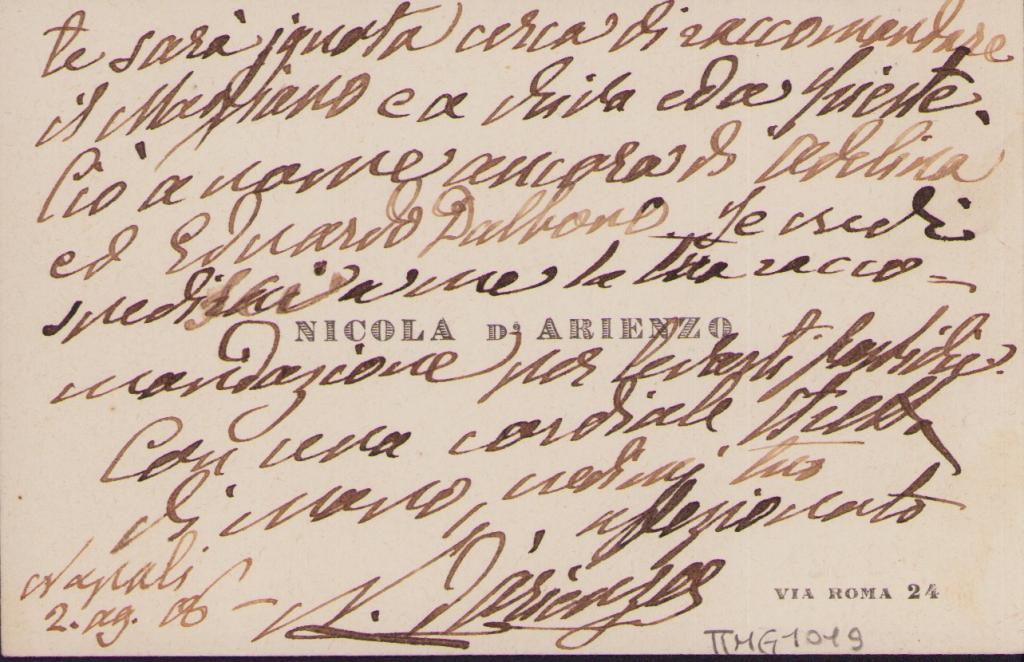 te sarà ignota cerca di raccomandare
il Marziano e a chi va ed a Trieste.
Ciò a nome ancora di Adelina
ed Eduardo Dalbono. Se credi
spedisci a me la tua racco-
NICOLA D'ARIENZO
mandazione per
Con una cordiale stretta
di mano, credimi tuo
affezionato
N. D'Arienzo
Napoli
2. ag. 06
VIA ROMA 24
TTMG1019